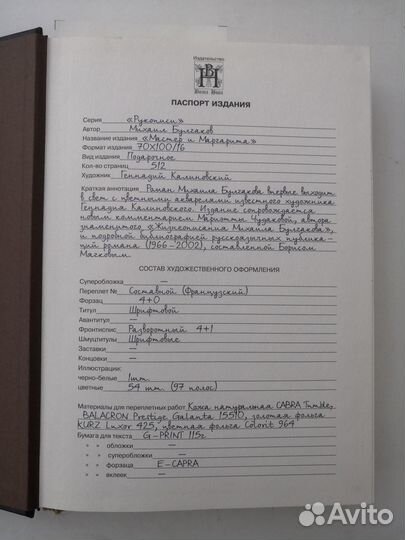 Издательство
ВН
Вита Нова
ПАСПОРТ ИЗДАНИЯ
Серия «Рукописи»
Автор Михаил Булгаков
Название издания «Мастер и Маргарита»
Формат издания 70х100/16
Вид издания Подарочное
Кол-во страниц 512
Художник Геннадий Калиновский
Краткая аннотация Роман Михаила Булгакова впервые выходит
в свет с цветными акварелями известного художника
Геннадия Калиновского. Издание сопровождается
новым комментарием Мариэтты Чудаковой, автора
знаменитого «Жизнеописания Михаила Булгакова»,
и подробной библиографией русскоязычных публика-
ций романа (1966-2002), составленной Борисом
Мягковым.
СОСТАВ ХУДОЖЕСТВЕННОГО ОФОРМЛЕНИЯ
Суперобложка —
Переплет № Составной (Французский)
Форзац 4+0
Титул Шрифтовой
Авантитул —
Фронтиспис Разворотный 4+1
Шмуцтитулы Шрифтовые
Заставки —
Концовки —
Иллюстрации:
черно-белые 1 шт.
цветные 54 шт. (97 полос)
Материалы для переплетных работ Кожа натуральная CABRA
BALACRON Prestige Galanta 15510, золотая фольга
KURZ Luxor 425, цветная фольга Colorit 964
Бумага для текста G-PRINT 115г
» » обложки —
» » суперобложки —
» » форзаца E-CAPRA
» » вклеек —
Avito